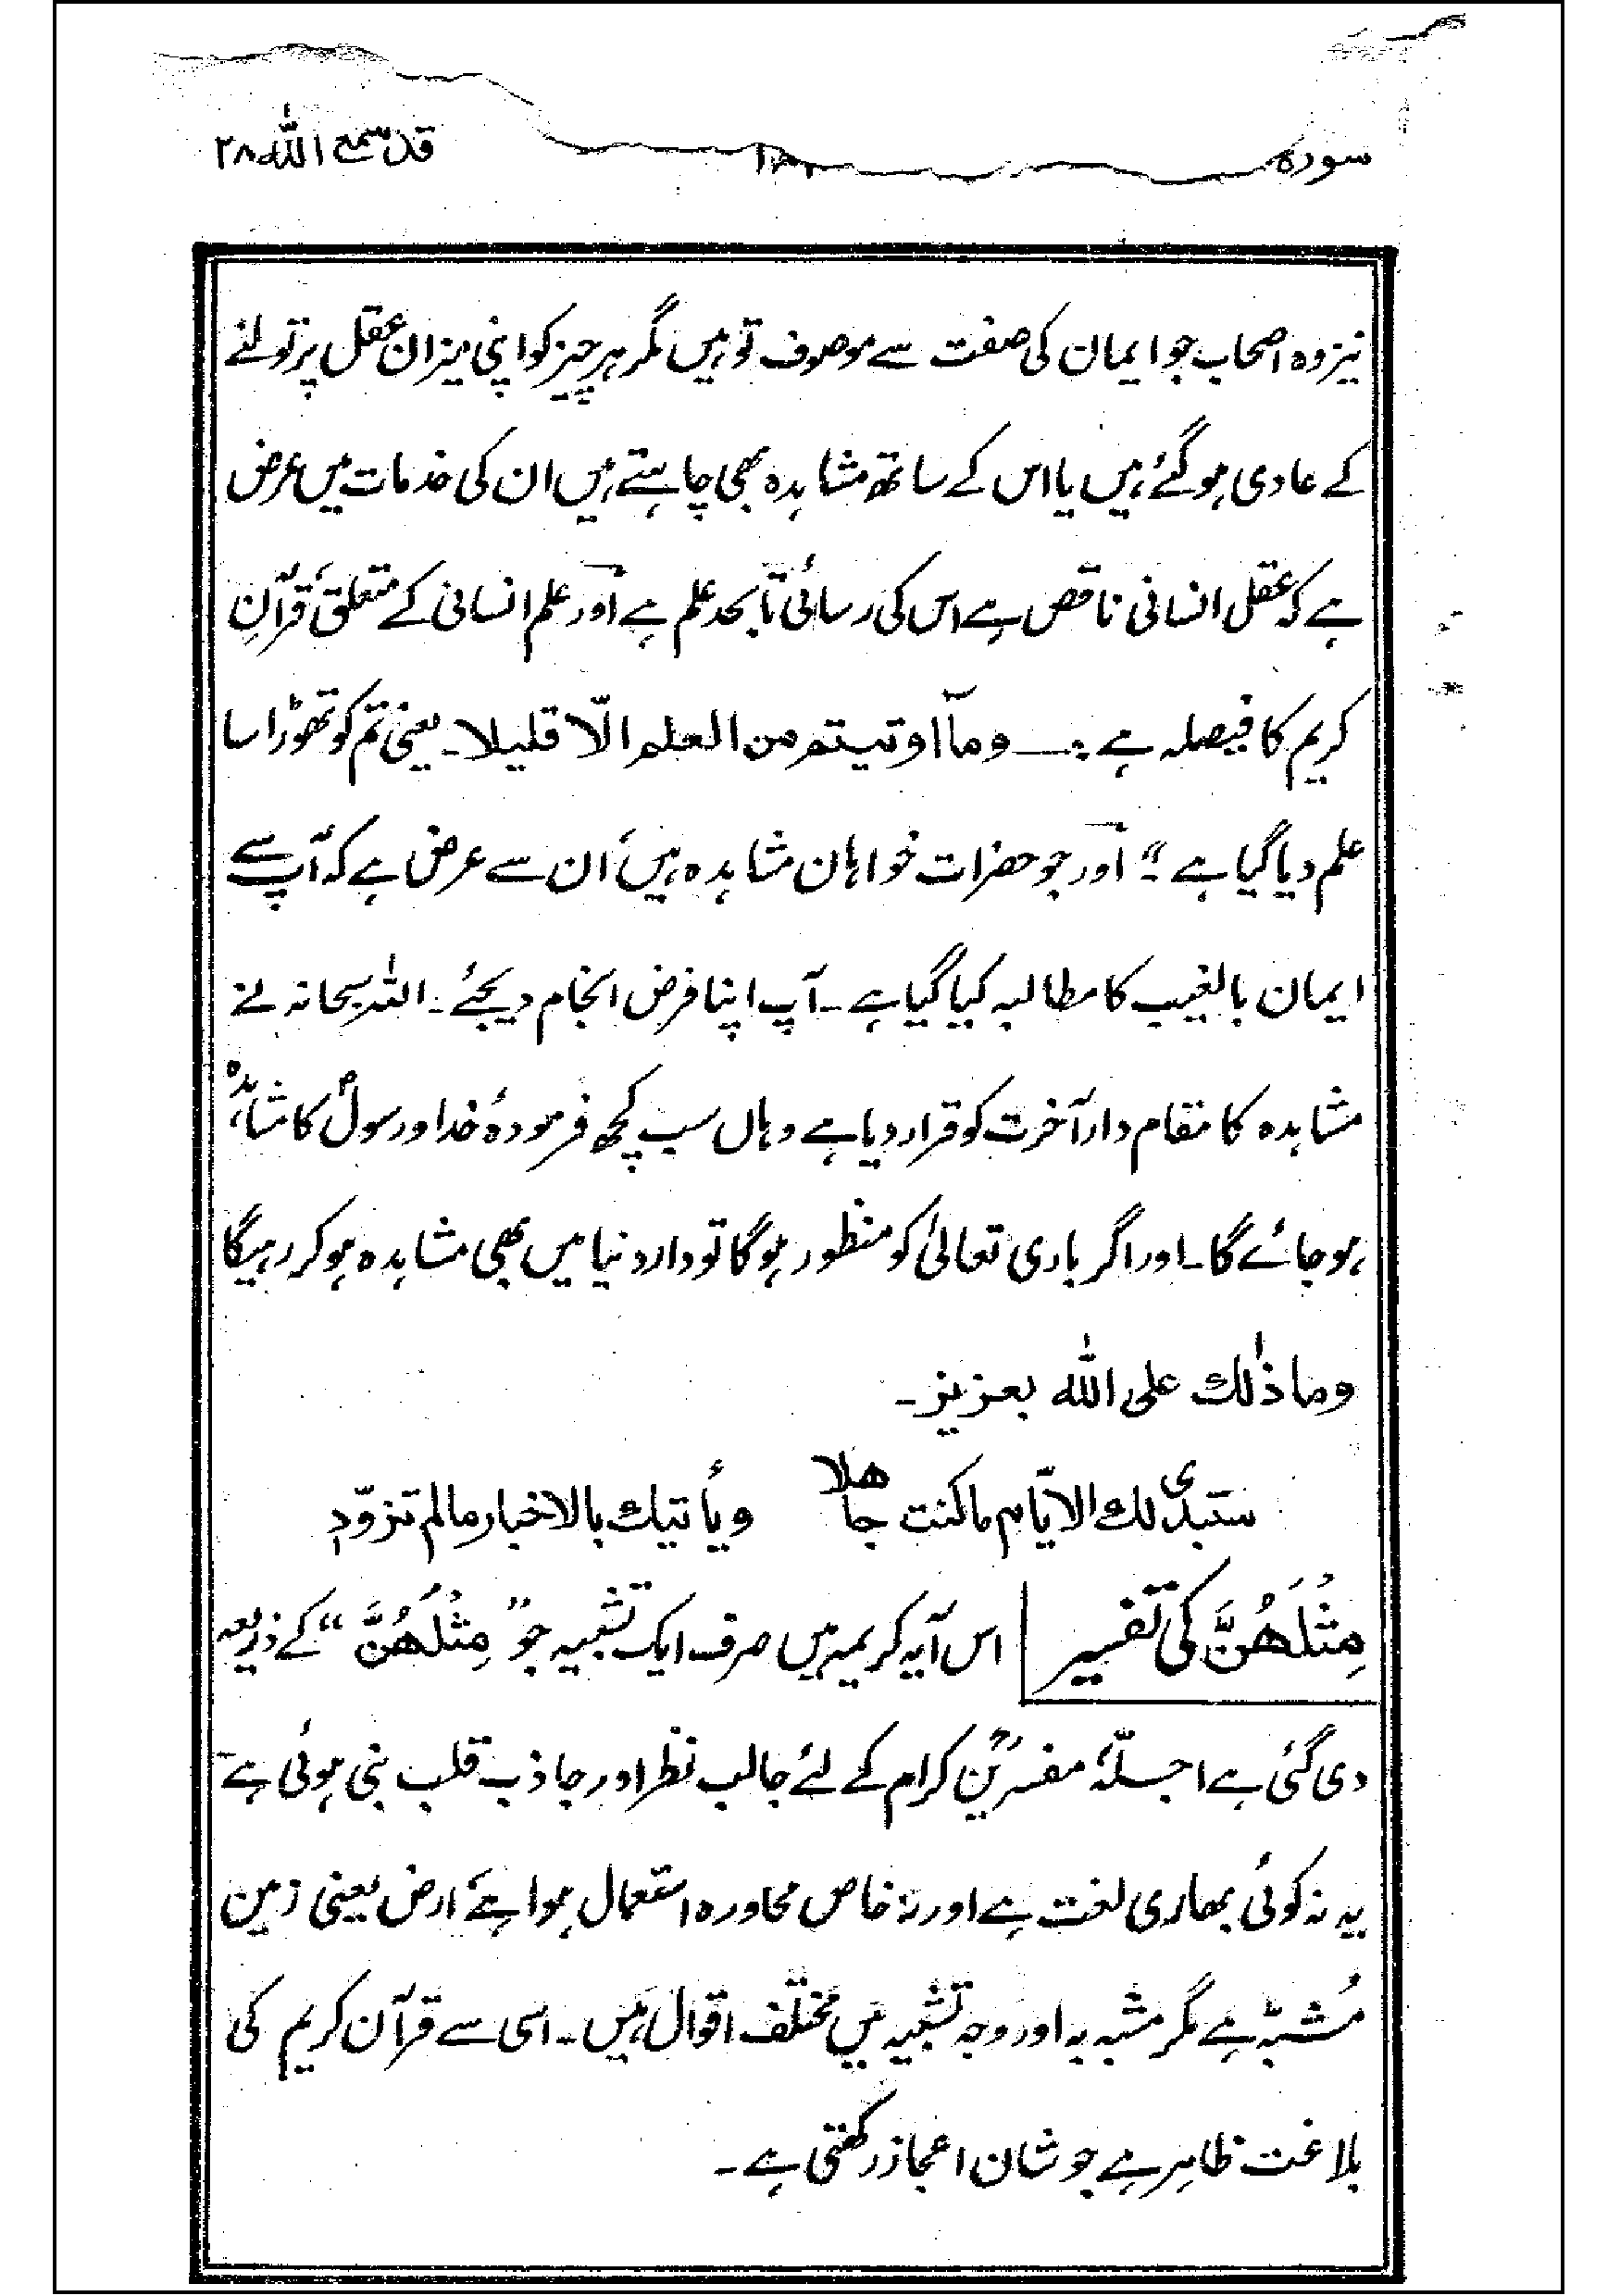 سوره قد سمع اللہ ۲۸
نیز وہ اصحاب جو ایمان کی صفت سے موصوف تو ہیں مگر ہر چیز کو اپنی میزان عقل پر تولنے
کے عادی ہو گئے ہیں یا اس کے ساتھ مشاہدہ بھی چاہتے ہیں ان کی خدمات میں عرض
ہے کہ عقل انسانی ناقص ہے اس کی رسائی تا بحد علم ہے اور علم انسانی کے متعلق قرآنِ
کریم کا فیصلہ ہے :ـــ ومآ اوتیتم من العلم الّا قلیلا۔ یعنی تم کو تھوڑا سا
علم دیا گیا ہے :“ اور جو حضرات خواہان مشاہدہ ہیں، ان سے عرض ہے کہ آپ سے
ایمان بالغیب کا مطالبہ کیا گیا ہے۔ آپ اپنا فرض انجام دیجئے۔ اللہ سبحانہ نے
مشاہدہ کا مقام دار آخرت کو قرار دیا ہے وہاں سب کچھ فرمودۂ خدا و رسولؐ کا مشاہدہ
ہو جائے گا۔ اور اگر باری تعالیٰ کو منظور ہوگا تو دار دنیا میں بھی مشاہدہ ہو کر رہیگا
وما ذٰلك علی اللہ بعزیز۔
ستبدی لك الایّام ما کنت جاھلا ویأتیك بالاخبار مالم تزوّدٖ
مِثْلَهُنَّ کی تفسیر اس آیہ کریمہ میں صرف ایک تشبیہ جو ”مِثْلَهُنَّ“ کے ذریعہ
دی گئی ہے اجلّۂ مفسرین کرام کے لئے جالب نظر اور جاذب قلب بنی ہوئی ہے
یہ نہ کوئی بھاری لغت ہے اور نہ خاص محاورہ استعمال ہوا ہے، ارض یعنی زمین
مُشبّہ ہے مگر مشبہ بہ اور وجہ تشبیہ میں مختلف اقوال ہیں۔ اسی سے قرآن کریم کی
بلاغت ظاہر ہے جو شان اعجاز رکھتی ہے۔